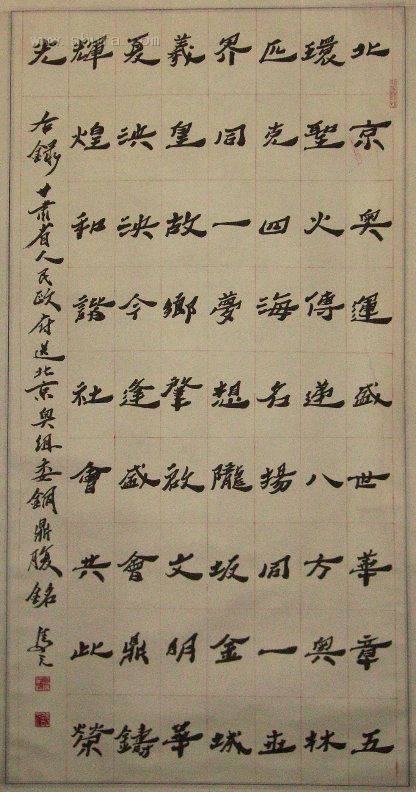 北京奥運盛世華章五
環聖火傳遞八方奥林
匹克四海名揚同一世
界同一夢想隴坂金城
義皇故鄉肇啟文明華
夏泱泱今逢盛會鼎鑄
輝煌和諧社會共此榮
光
右錄甘肅省人民政府送北京奥組委銅鼎腹銘